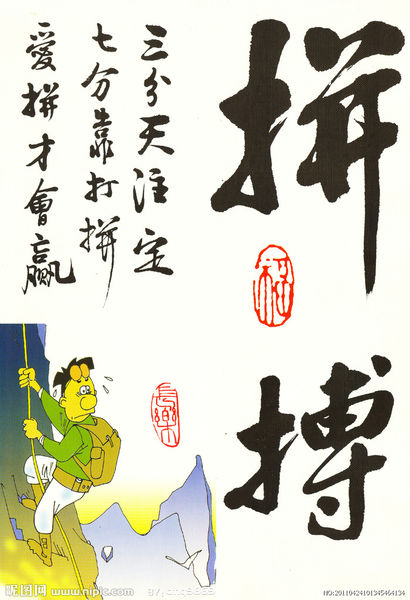 拼搏
三分天注定
七分靠打拼
愛拼才會贏
長樂
昵图网 www.nipic.com
NO:20110424101345464134